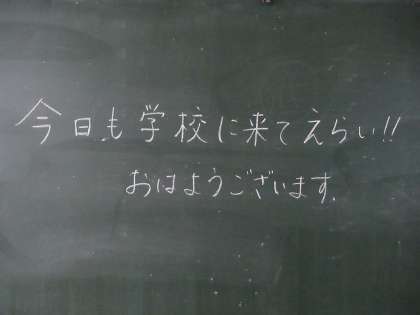 今日も学校に来てえらい!!
おはようございます.